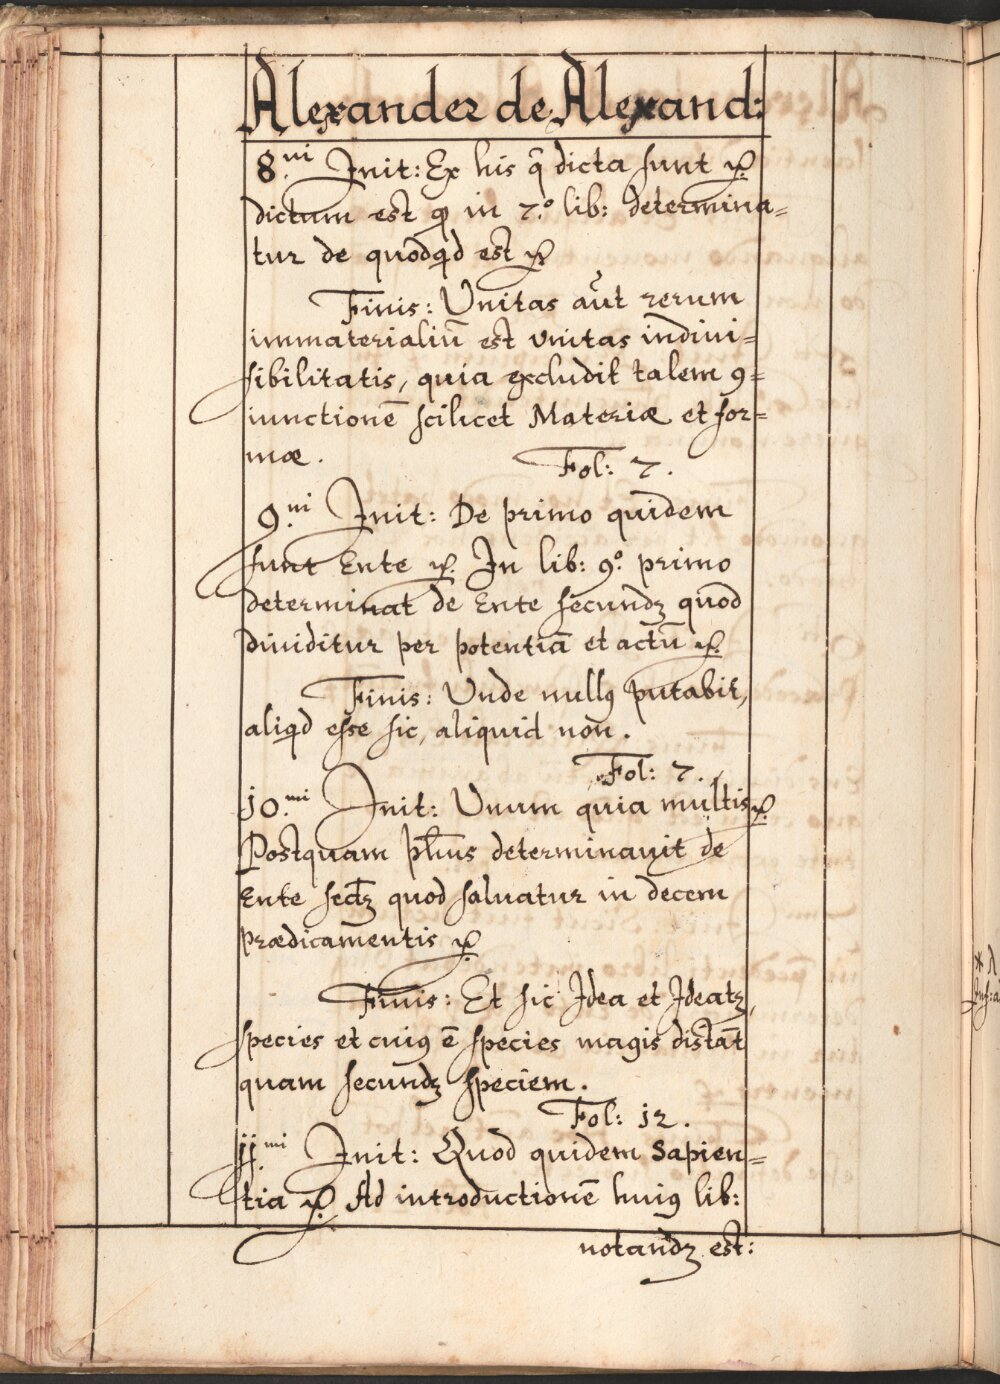 Alexander de Alexand:
8.ni Init: Ex his q̃ dicta sunt ꝛc.
dictum est qđ in 7.º lib: determina=
tur de quodqd est ꝛc.
Finis: Unitas aũt rerum
immaterialiũ est vnitas indiui=
sibilitatis, quia excludit talem ꝯ=
iunctionẽ scilicet Materiæ et for=
mæ.
Fol: 7.
9.ni Init: De primo quidem
sunt Ente ꝛc. In lib: 9.º primo
determinat de Ente secundꝫ quod
diuiditur per potentiã et actũ ꝛc.
Finis: Unde nullꝰ putabit,
aliqd esse sic, aliquid non.
Fol: 7.
j0.mi Init: Unum quia multis ꝛc.
Postquam pħus determinauit de
Ente secđꝫ quod saluatur in decem
prædicamentis ꝛc.
Finis: Et sic Idea et Ideatꝫ,
species et cuiꝰ ẽ species magis distãt
quam secundꝫ speciem.
Fol: j2.
jj.mi Init: Quod quidem Sapien=
tia ꝛc. Ad introductionẽ huiꝰ lib:
notandꝫ est: